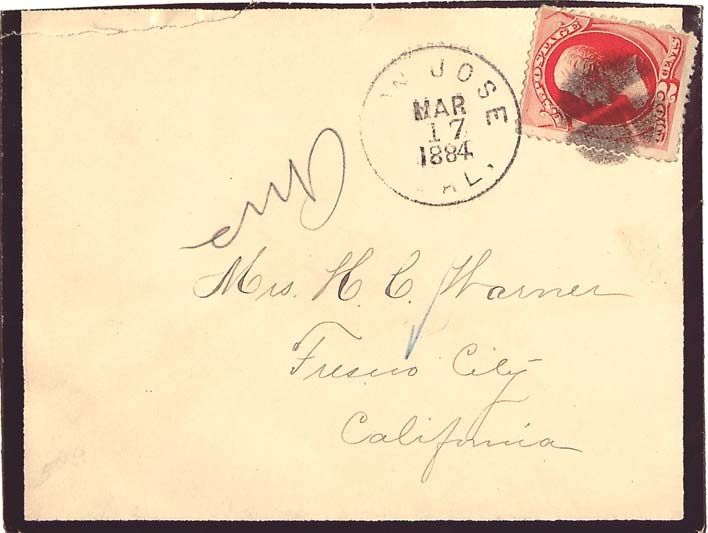 N JOSE
MAR
17
1884
AL.
U.S. POSTAGE
Mrs. H. C. Warner
Fresno City
California